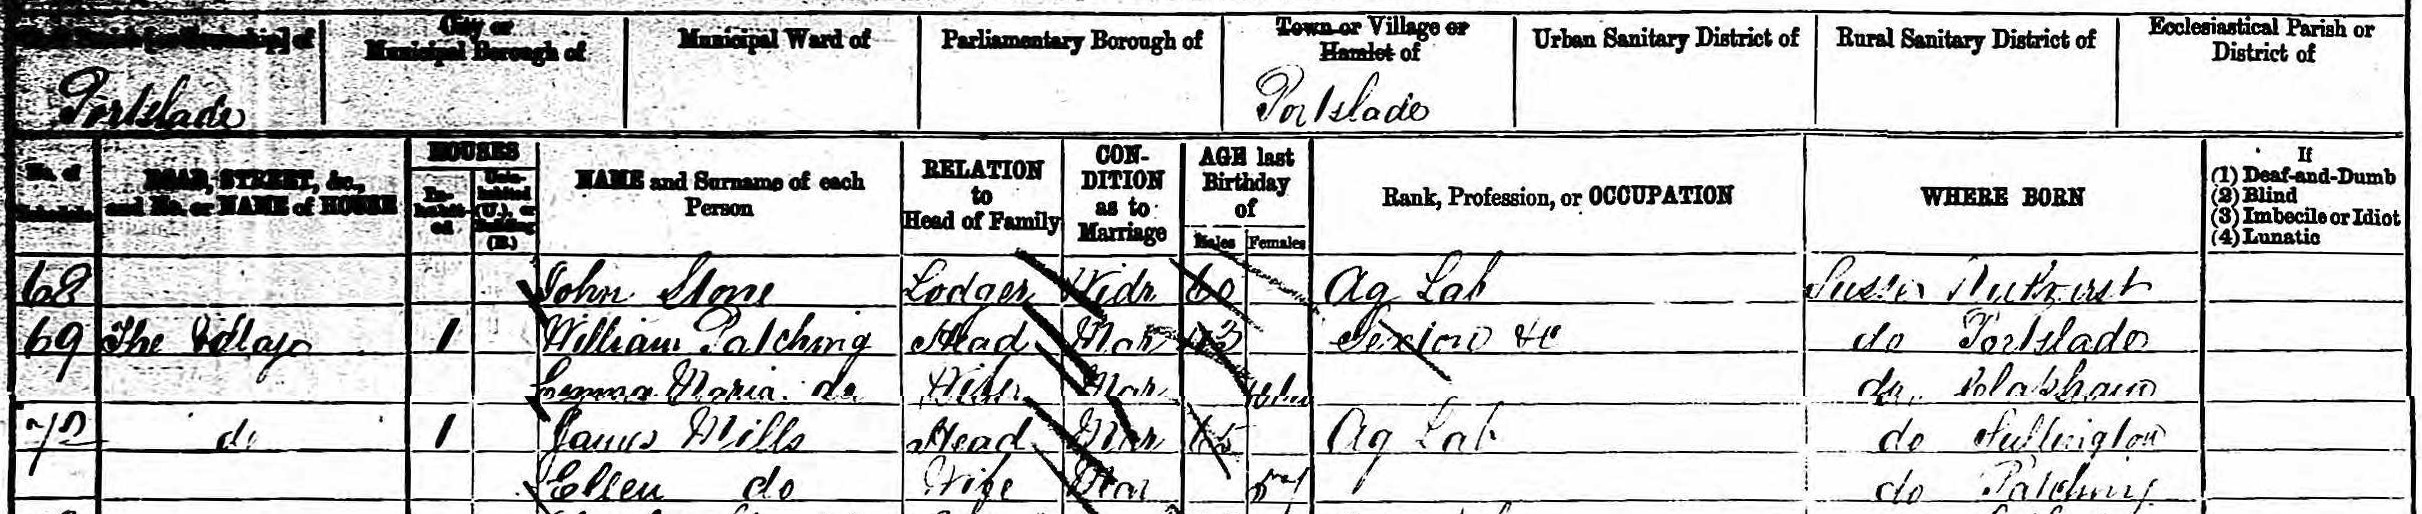 Civil Parish [or Township] of City or Municipal Borough of Municipal Ward of Parliamentary Borough of Town or Village or Hamlet of Urban Sanitary District of Rural Sanitary District of Ecclesiastical Parish or District of
Portslade Portslade
No. of Schedule ROAD, STREET, &c., and No. or NAME of HOUSE HOUSES Inhabited Uninhabited (U.), or Building (B.) NAME and Surname of each Person RELATION to Head of Family CONDITION as to Marriage AGE last Birthday of Males Females Rank, Profession, or OCCUPATION WHERE BORN If (1) Deaf-and-Dumb (2) Blind (3) Imbecile or Idiot (4) Lunatic
68 John Stone Lodger Widr 60 Ag Lab Sussex
69 The Village 1 William Patching Head Mar Sexton &c do Portslade
Emma Maria do Wife Mar do
70 do 1 James Mills Head Mar 65 Ag Lab do Sullington
Ellen do Wife Mar do Patching